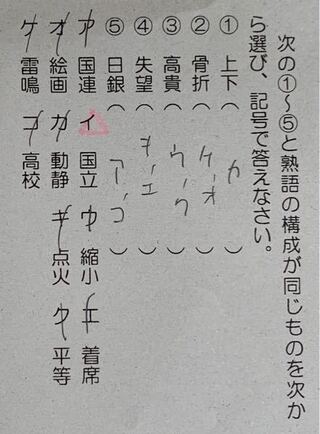 次の①～⑤と熟語の構成が同じものを次か
ら選び、記号で答えなさい。
① 上下（ カ ）
② 骨折（ ケ、オ ）
③ 高貴（ ウ、ク ）
④ 失望（ キ、エ ）
⑤ 日銀（ ア、コ ）
ア 国連 イ 国立 ウ 縮小 エ 着席
オ 絵画 カ 動静 キ 点火 ク 平等
ケ 雷鳴 コ 高校